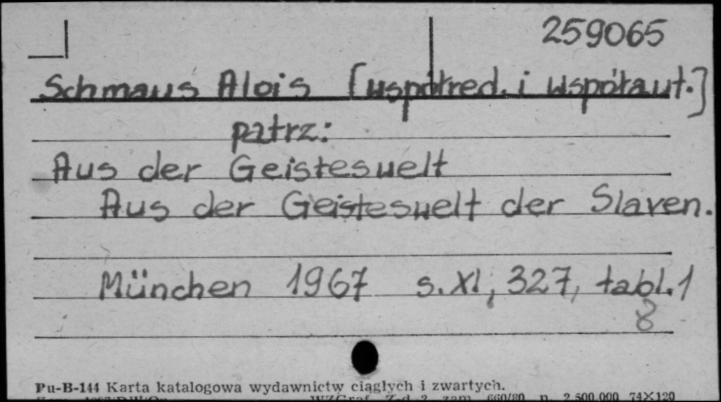 259065
Schmaus Alois [współred. i współaut.]
patrz:
Aus der Geisteswelt
Aus der Geisteswelt der Slaven.
München 1967 s. XI, 327, tabl. 1
8
Pu-B-144 Karta katalogowa wydawnictw ciągłych i zwartych.
WZGraf. Z-d 2 zam. 660/80 n. 2.500.000 74×120